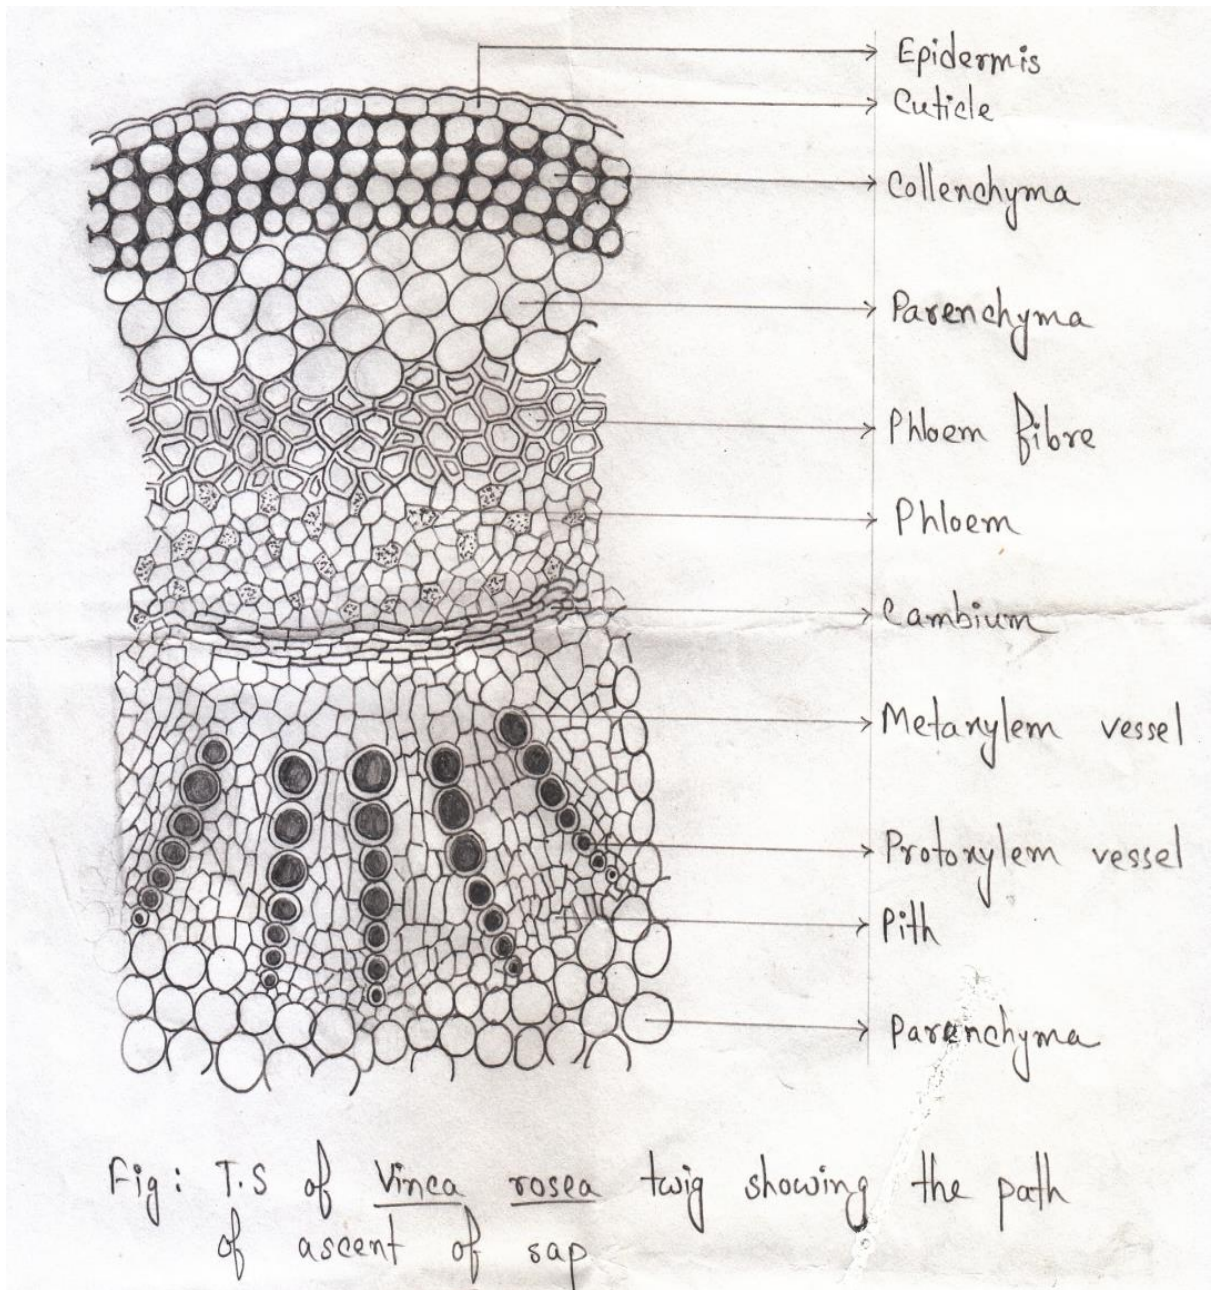 Epidermis
Cuticle
Collenchyma
Parenchyma
Phloem fibre
Phloem
Cambium
Metaxylem vessel
Protoxylem vessel
Pith
Parenchyma
Fig: T.S of Vinca rosea twig showing the path
of ascent of sap